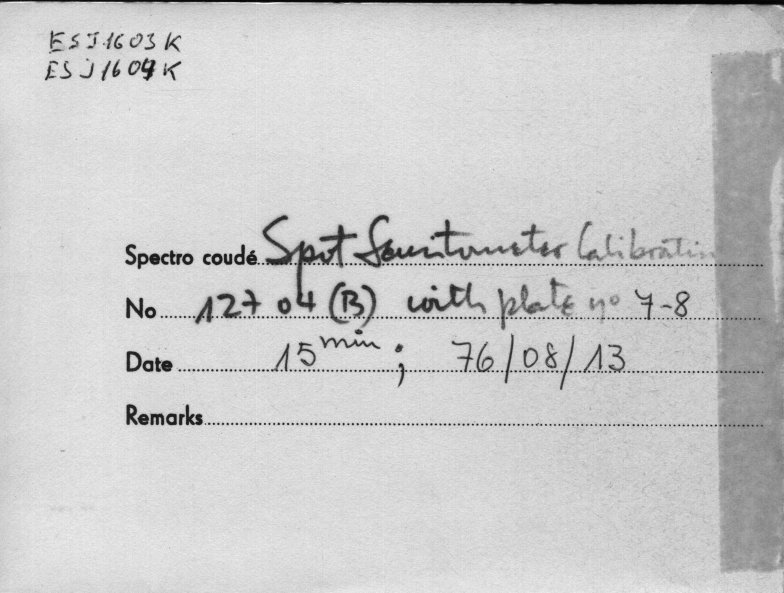 ESJ1603K
ESJ1604K
Spectro coudé Spot Sensitometer Calibration
No 12704 (B) with plate no 7-8
Date 15 min ; 76/08/13
Remarks